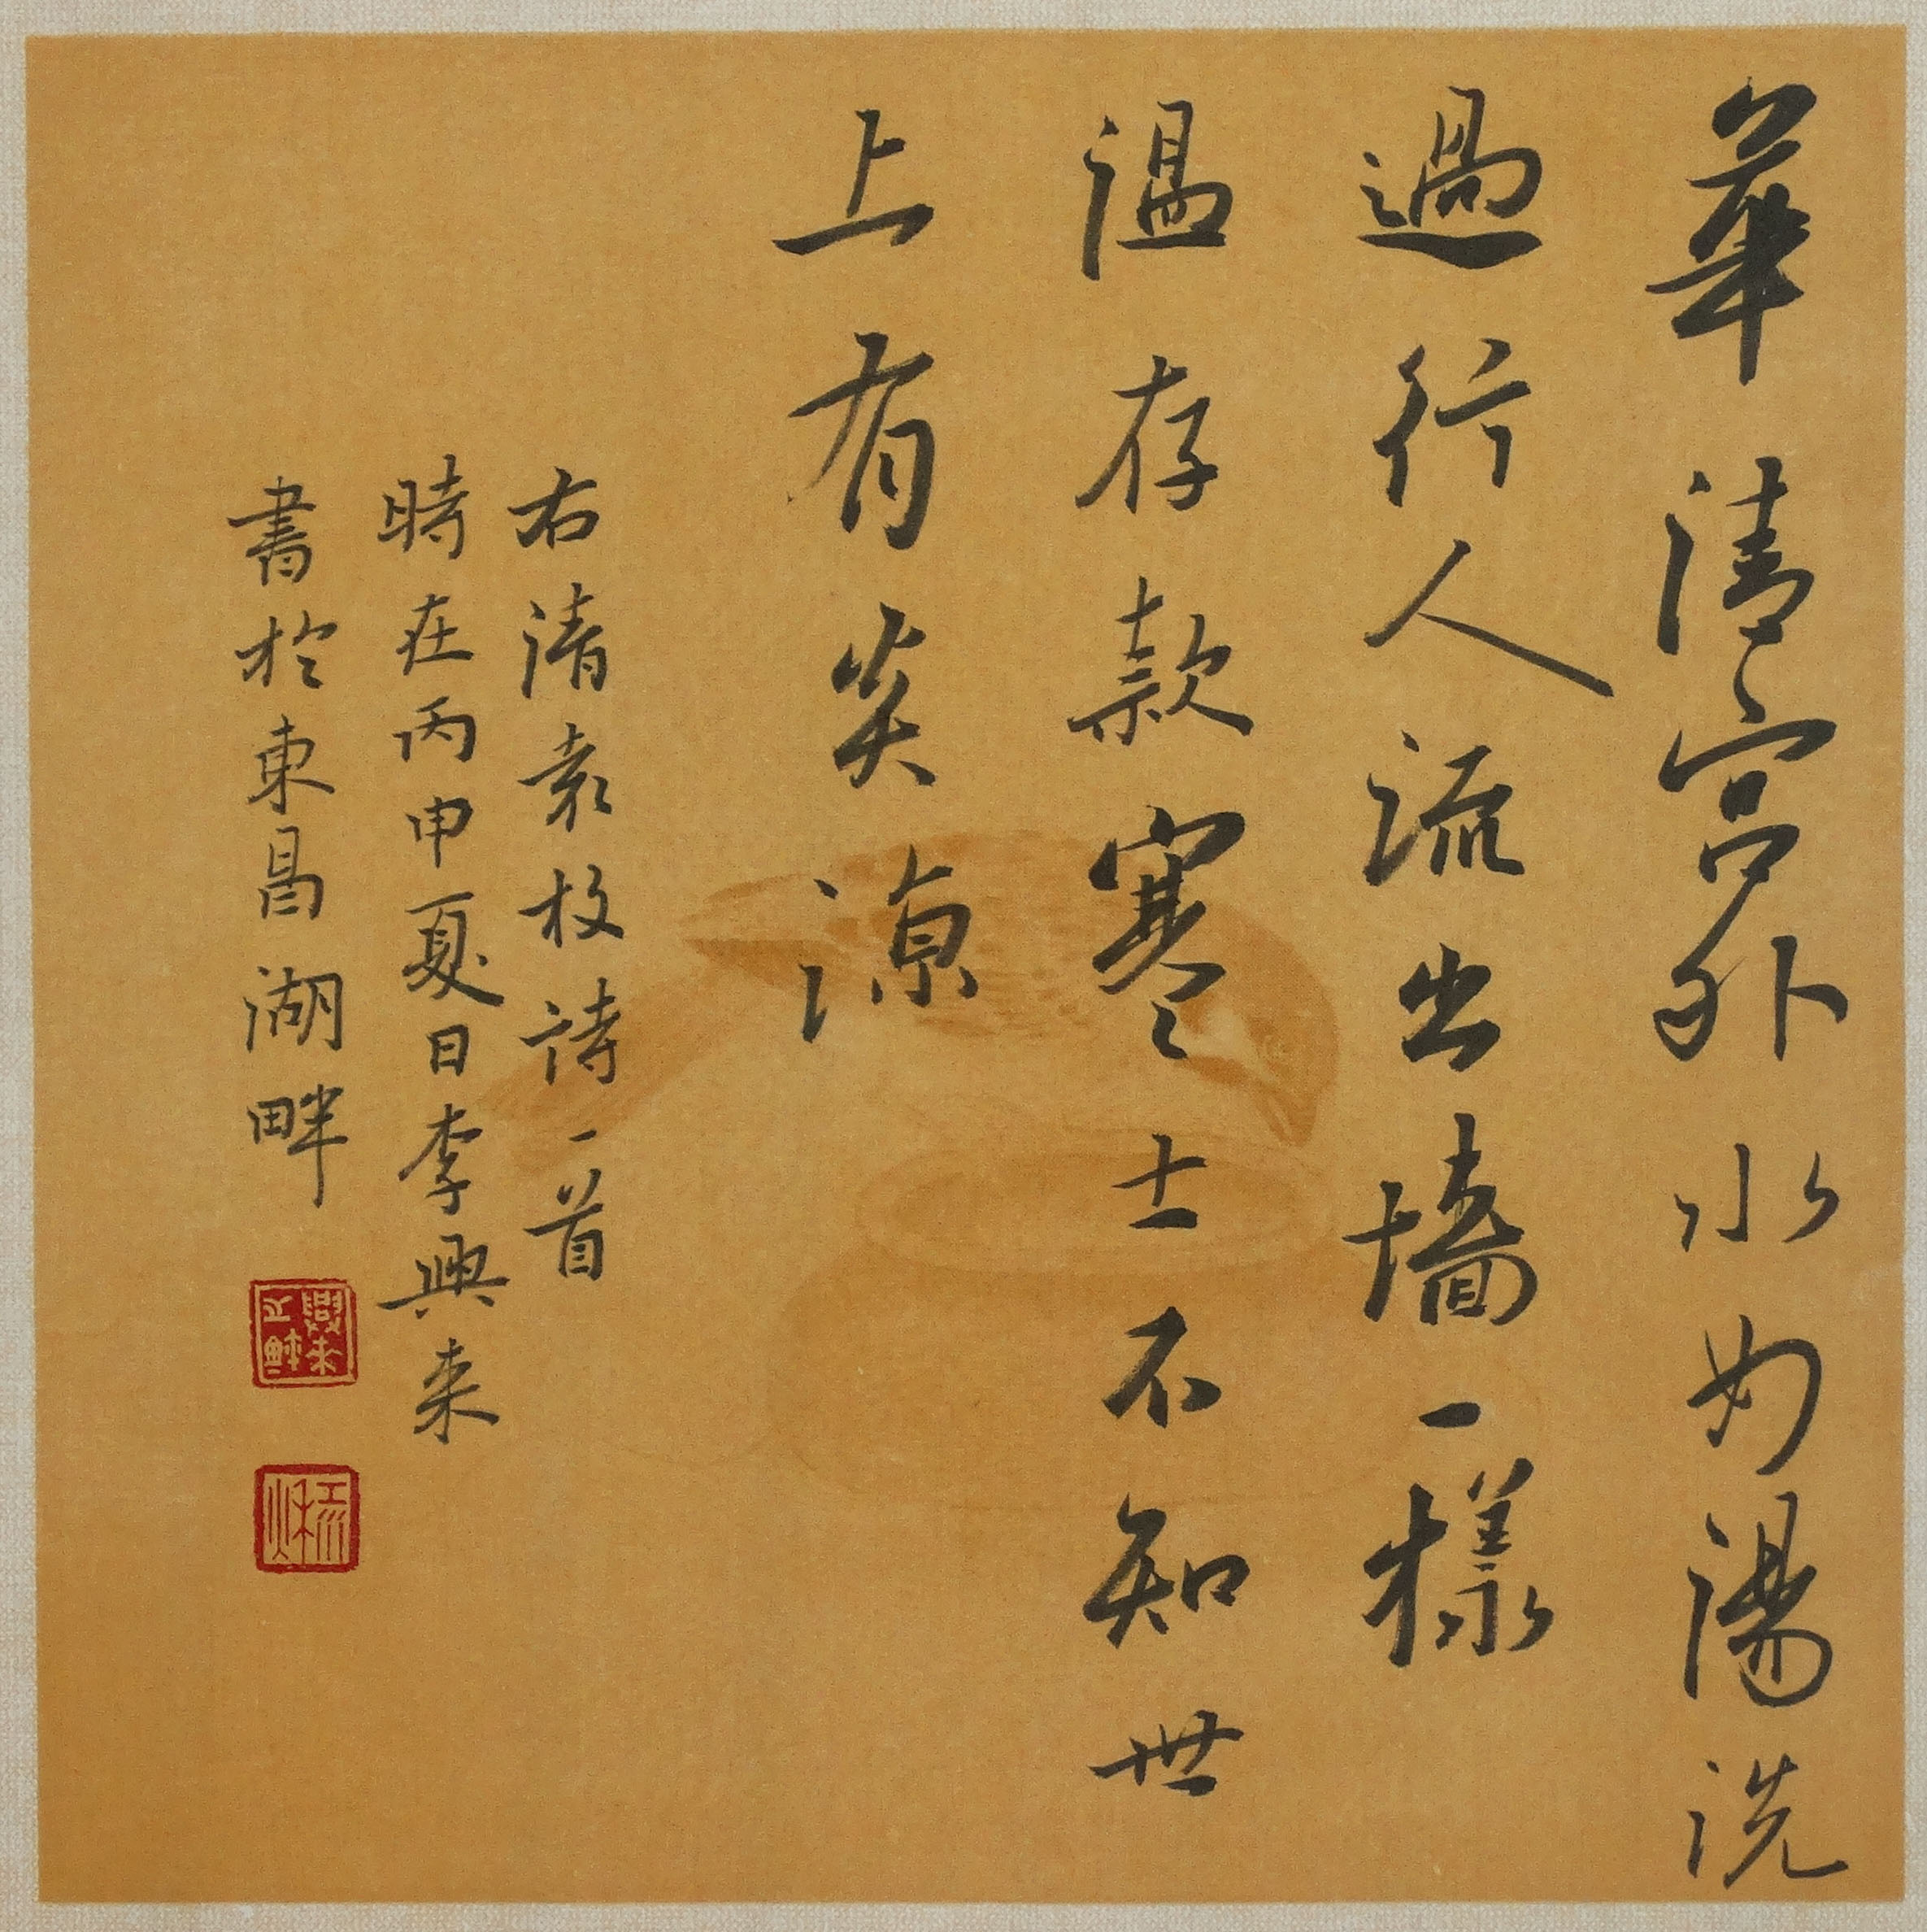 華清宮外水如湯洗
過行人流出墻一樣
溫存款寒士不知世
上有炎涼
右清袁枚詩一首
時在丙申夏日李興来
書於東昌湖畔